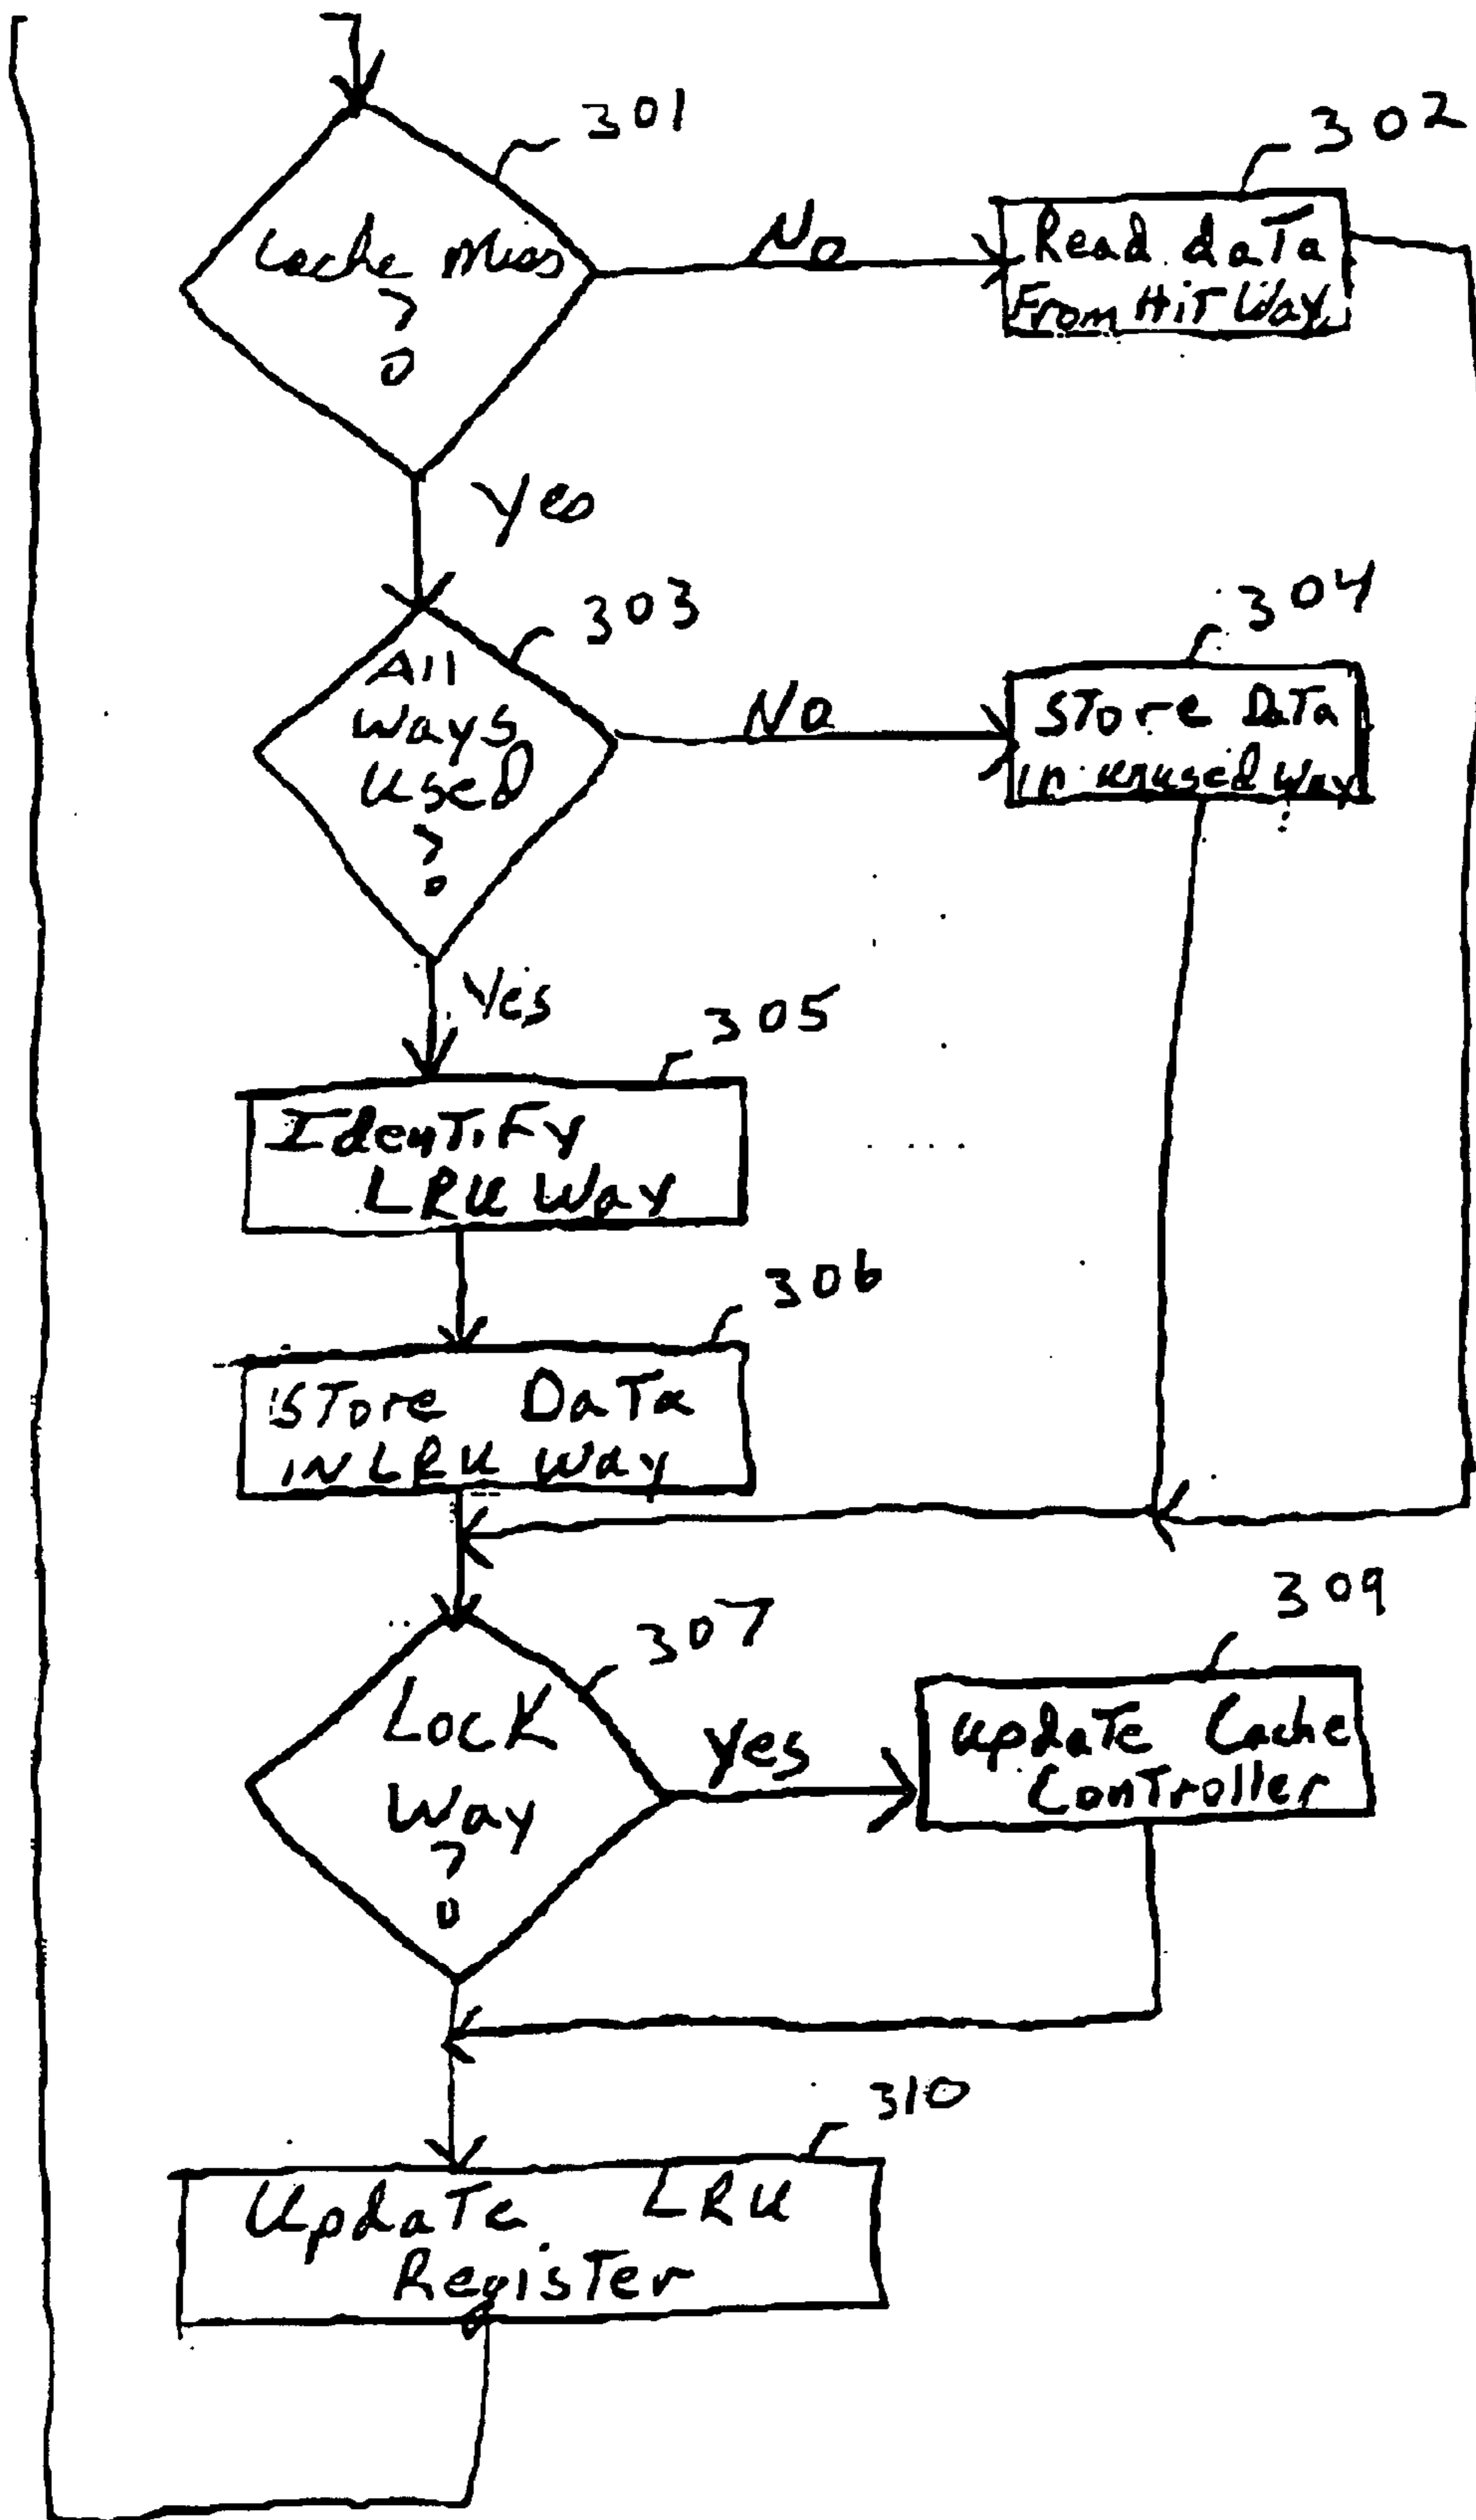 301
302
Cache Miss
?
No
Read daTa
From HiT Way
Yes
303
304
All
Ways
Used
?
No
STore DaTa
In unused way
Yes
305
IdenTiFy
LRU Way
306
STore DaTa
in LRU Way
307
309
Lock
Way
?
Yes
UpdaTe Cache
ConTroller
310
UpdaTe LRU
RegisTer